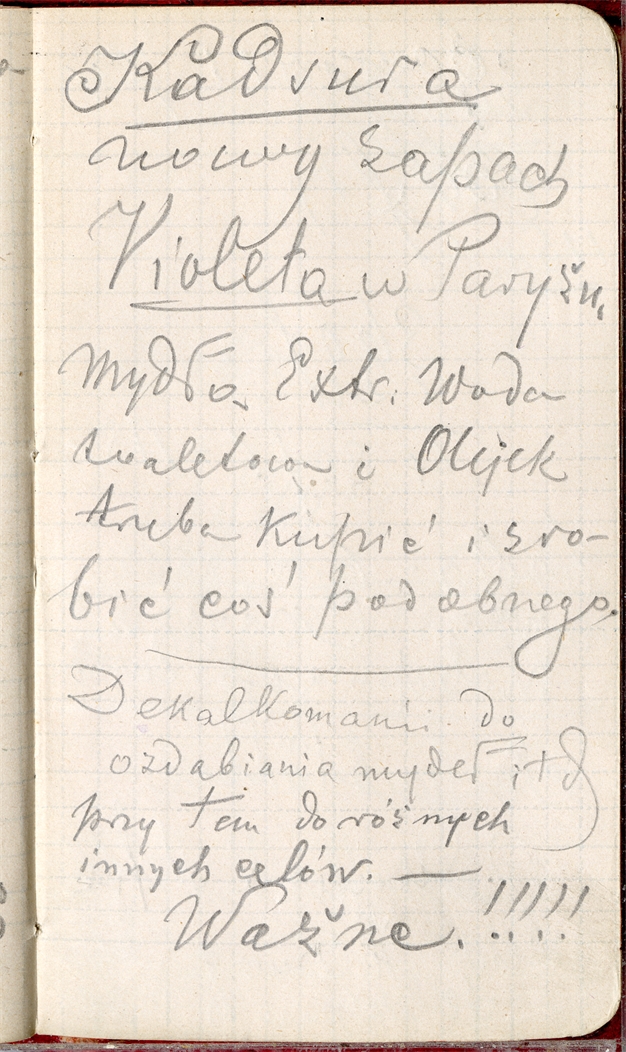 Kadsura
nowy zapach
Violeta w Paryżu,
Mydło, Extr. Woda
toaletowa i Olejek
trzeba Kupić i zro-
bić coś podobnego.
Dekalkomanii do
ozdabiania mydeł itd
przy tem do różnych
innych celów. —
Ważne.!!!!!